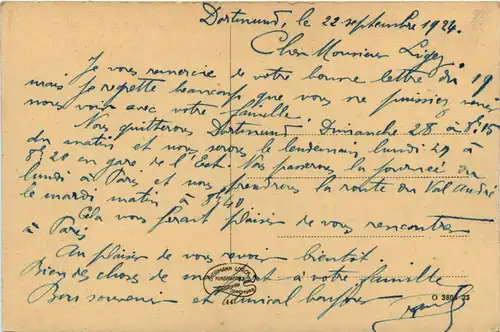 Dortmund, le 22 septembre 1924.
Cher Monsieur
Je vous remercie de votre bonne lettre du 19
mais je regrette beaucoup que vous ne puissiez venir
nous voir avec votre famille.
Nous quitterons Dortmund Dimanche 28 à 8h15
du matin et nous serons le lendemain lundi 29 à
8h20 en gare de l'Est. Nous passerons la journée du
lundi à Paris et nous prendrons la route du Val André
le mardi matin à 8h40
Cela vous ferait plaisir de vous rencontrer
à Paris
Au plaisir de vous revoir bientôt.
Bien des choses de ma part à votre famille
Bon souvenir et amical bonjour
HERMANN LORCH
KUNSTANSTALT
DORTMUND
O 3804 23